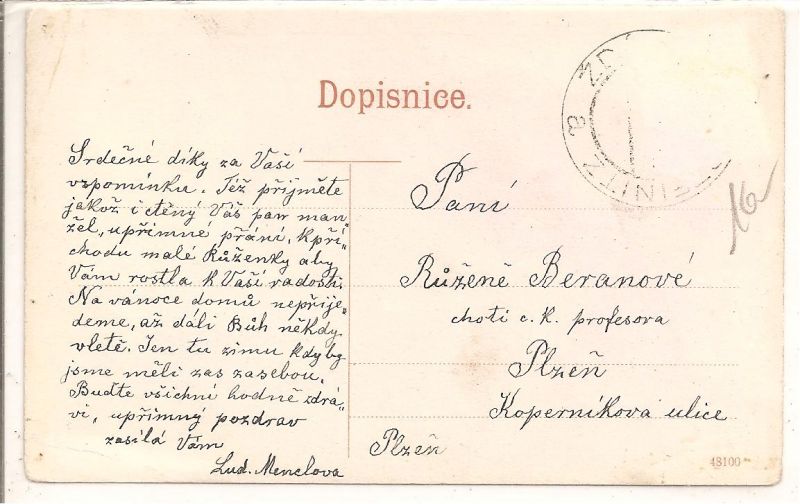 Dopisnice.
Srdečné díky za Vaší
vzpomínku. Též přijměte
jakož i ctěný Váš pan man„
žel, upřímne přání, k pří„
chodu malé Růženky aby
Vám rostla k Vaší radosti.
Na vánoce domů nepřije„
deme, až dáli Bůh někdy
vletě. Jen tu zimu kdy by
jsme měli zas zasebou.
Buďte všichni hodně zdrá„
vi, upřímný pozdrav
zasílá Vám
Lud. Menclova
Paní
Růženě Beranové
choti c. k. profesora
Plzeň
Koperníkova ulice
Plzeň
48100